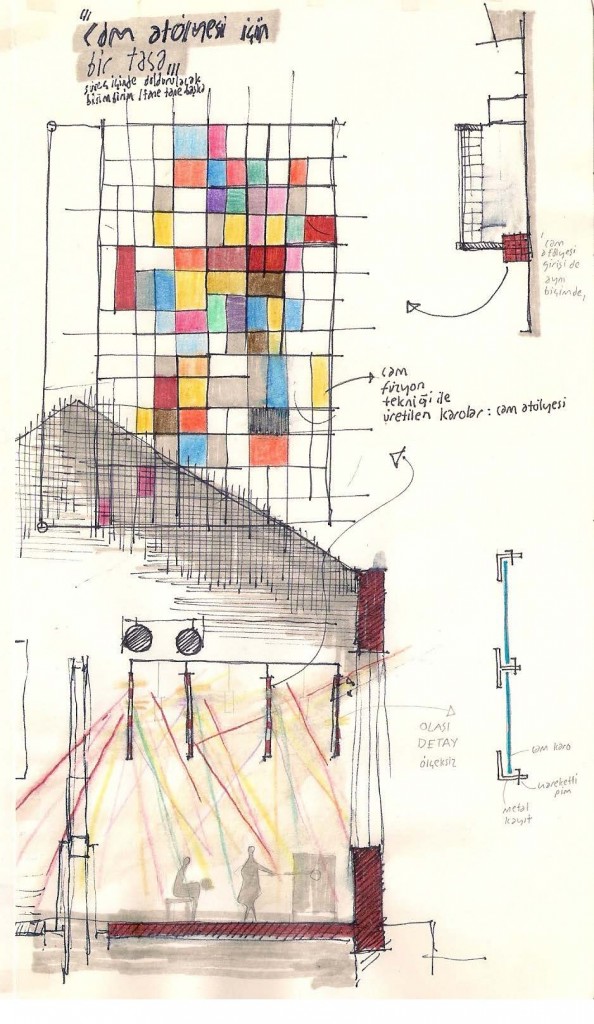 "cam atölyesi için
bir tasa,,,
süreç içinde doldurulacak
birim birim / tane tane başka
cam
atölyesi
girişi de
aynı
biçimde,
cam
füzyon
tekniği ile
üretilen karolar : cam atölyesi
OLASI
DETAY
ölçeksiz
cam karo
hareketli
pim
metal
kayıt